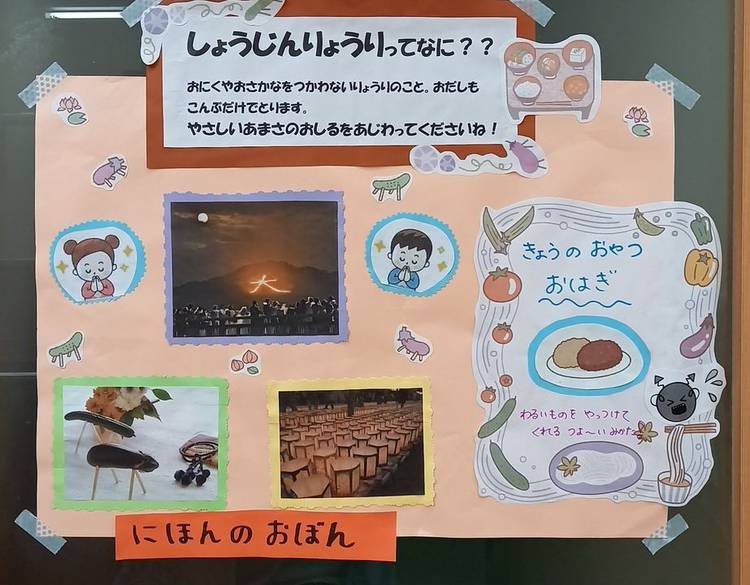 しょうじんりょうりってなに？？
おにくやおさかなをつかわないりょうりのこと。おだしも
こんぶだけでとります。
やさしいあまさのおしるをあじわってくださいね！
大
きょうの おやつ
おはぎ
わるいものを やっつけて
くれる つよ〜い みかた
にほんの おぼん